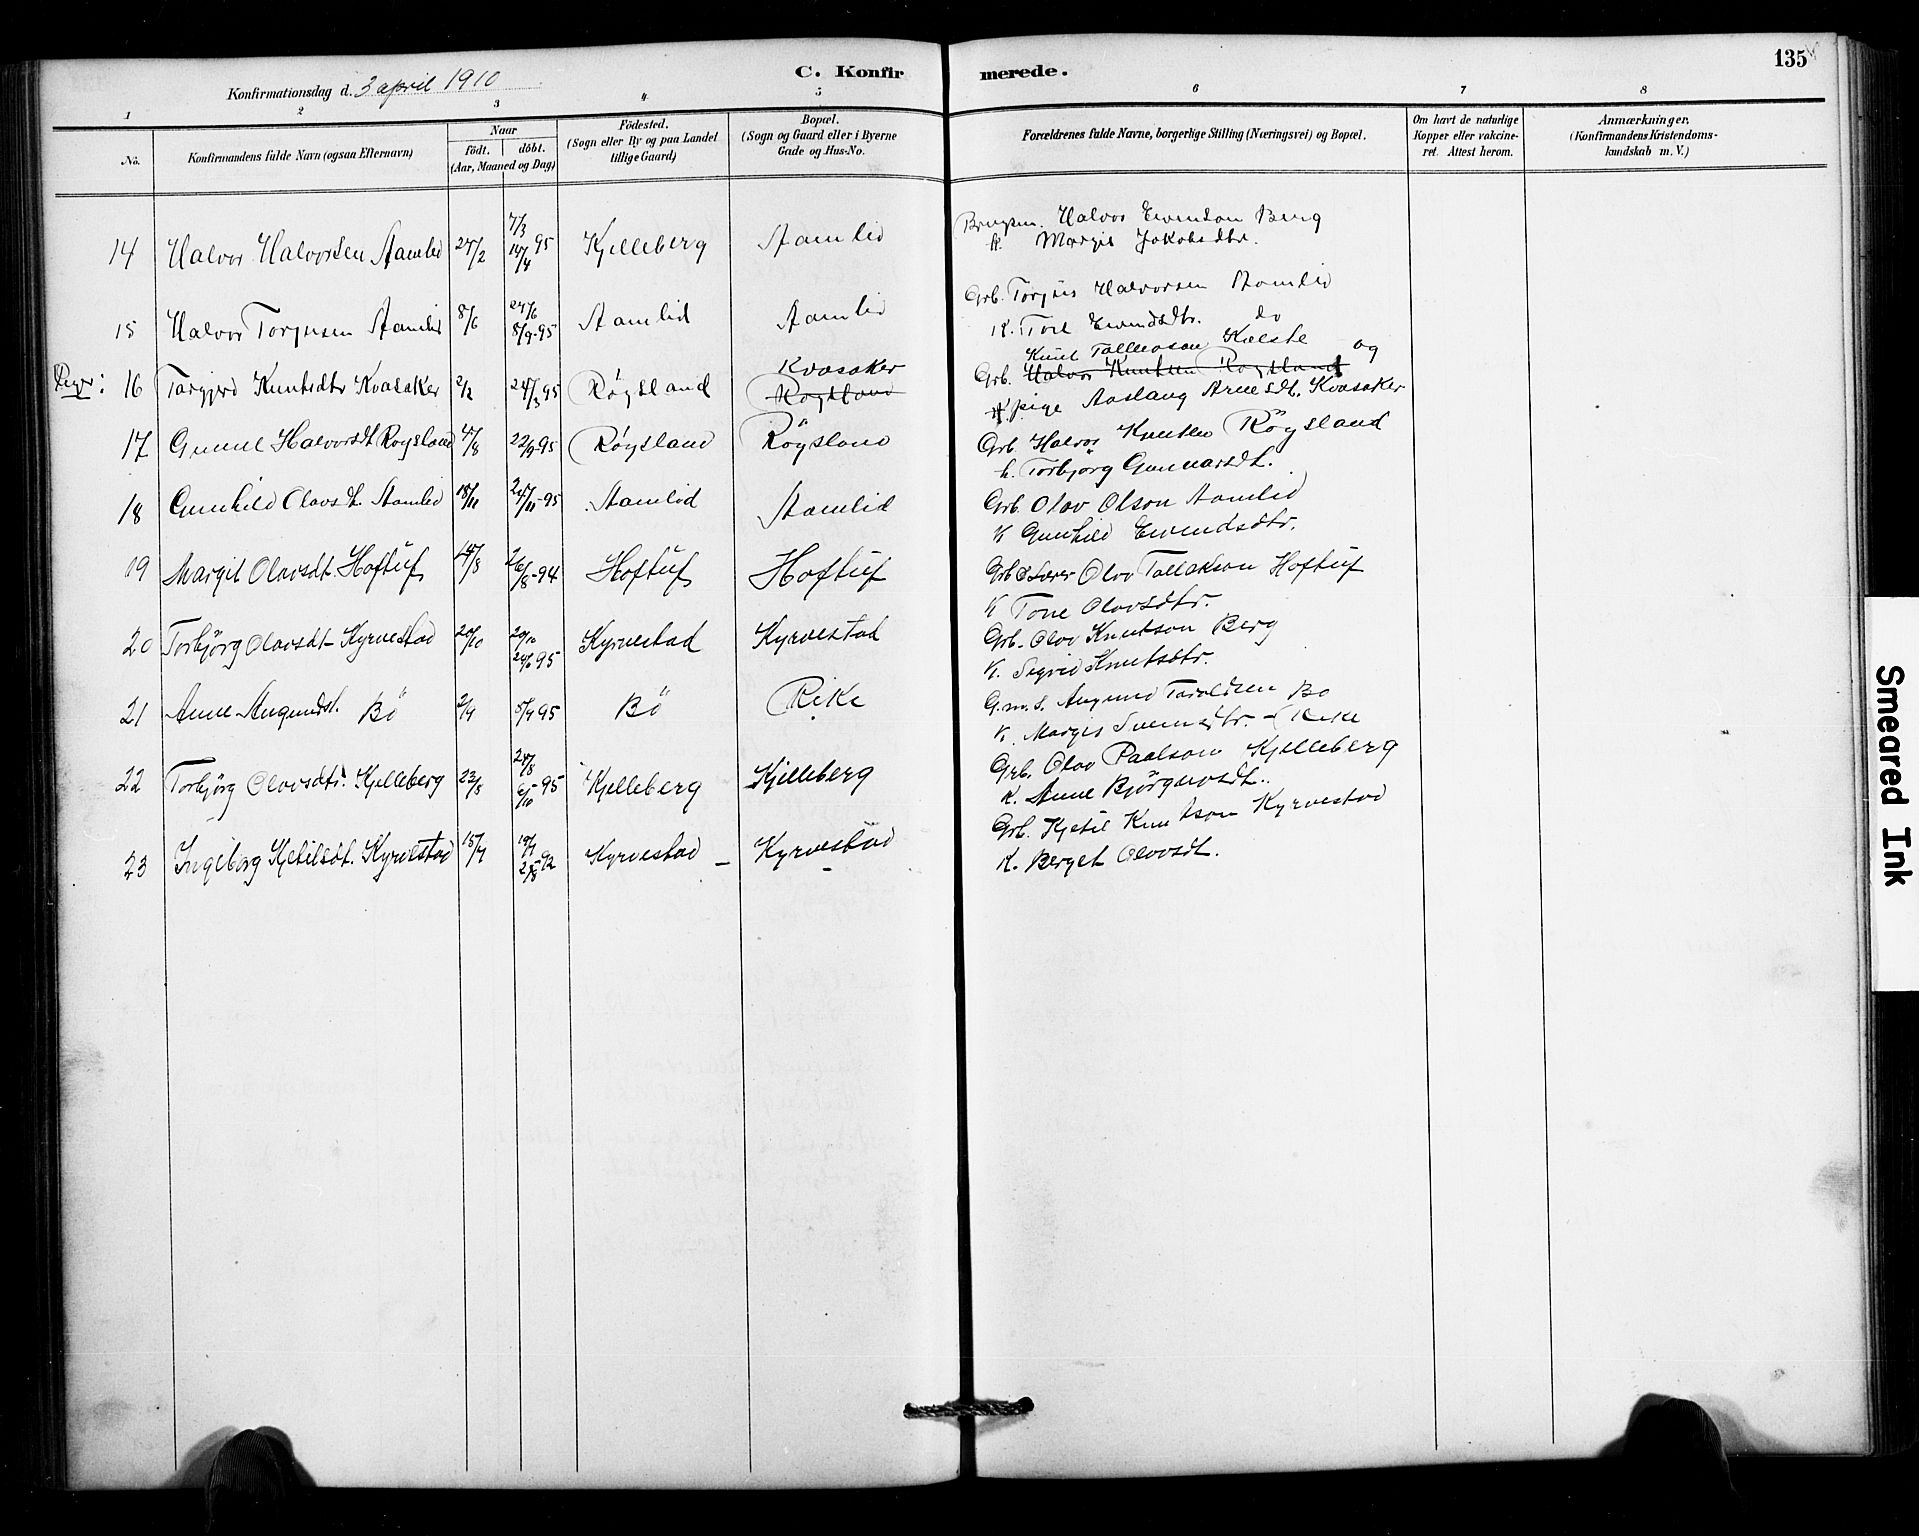 135
C. Konfirmerede.
Konfirmationsdag d. 3 april 1910
1 2 3 4 5 6 7 8
No.
Konfirmandens fulde Navn (ogsaa Efternavn)
Naar
födt. döbt.
(Aar, Maaned og Dag)
Födested.
(Sogn eller By og paa Landet
tillige Gaard)
Bopæl.
(Sogn og Gaard eller i Byerne
Gade og Hus-No.
Forældrenes fulde Navne, borgerlige Stilling (Næringsvei) og Bopæl.
Om havt de naturlige
Kopper eller vakcine-
ret. Attest herom.
Anmærkninger.
(Konfirmandens Kristendoms-
kundskab m. V.)
14 Halvor Halvorsen Aamlid 27/2 7/3 14/4 95 Kjelleberg Aamlid Halvor Evendson Berg
K. Margit Jakobsdtr.
15 Halvor Torjusen Aamlid 8/6 24/6 8/9-95 Aamlid Aamlid Grb. Torjus Halvorsen Aamlid
K. Tore Evendsdtr. do
Knut Tallevson Kalste og
16 Targjerd Knutsdtr Kvasaker 2/2 24/3 95 Röysland Kvasaker Röysland Grb. Halvor Knutsen Röysland
K. pige Aaslaug Arnesdt. Kvasaker
17 Gunne Halvorsdt Röysland 4/8 22/9-95 Röysland Röysland Grb. Halvor Knutsen Röysland
k. Torbjörg Gunnarsdt.
18 Gunhild Olavsdt. Aamlid 18/11 24/11-95 Aamlid Aamlid Grb. Olav Olson Aamlid
K Gunhild Evendsdtr.
19 Margit Olavsdt. Hoftuf 14/8 26/8-94 Hoftuf Hoftuf Grb & Lærer Olav Tallakson Hoftuf
K Tone Olavsdtr.
20 Torbjörg Olavsdt- Kyrvestad 20/10 20/10 95 Kyrvestad Kyrvestad Grb. Olav Knutson Berg
K. Sigrid Knutsdtr.
21 Anne Augundsdt. Bö 2/4 5/4 95 Bö Rike G.m.S. Augund Taraldsen Bö
K. Margit Svennsdtr. - Rike
22 Torbjörg Olavsdtr. Kjelleberg 23/8 24/8 6/10 95 Kjelleberg Kjelleberg Grb. Olav Paalson Kjelleberg
K. Anne Björgnvsdt.
23 Ingeborg Kjetilsdt. Kyrvestad 15/7 19/7 28/8 92 Kyrvestad - Kyrvestad - Grb. Kjetil Knutson Kyrvestad
K. Berget Olavsdt.
Smeared Ink